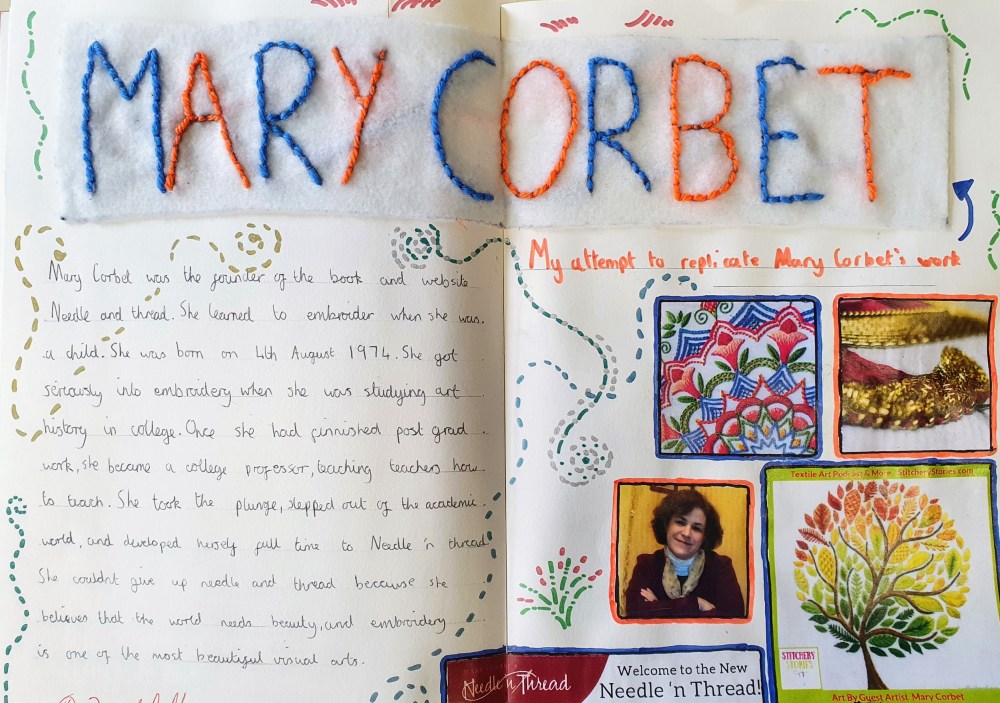 MARY CORBET
Mary Corbet was the founder of the book and website
Needle and thread. She learned to embroider when she was
a child. She was born on 4th August 1974. She got
seriously into embroidery when she was studying art
history in college. Once she had finnished post grad
work, she became a college professor, teaching teachers how
to teach. She took the plunge, stepped out of the academic
world, and developed herself full time to Needle 'n thread
She couldnt give up needle and thread because she
believes that the world needs beauty, and embroidery
is one of the most beautiful visual arts.
My attempt to replicate Mary Corbet's work
Textile Art Podcast & More StitcheryStories.com
STITCHERY
STORIES
Art By Guest Artist Mary Corbet
Needle 'n Thread
Welcome to the New
Needle 'n Thread!